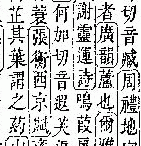 切音臧周禮地
者廣韻蘆也爾
謝靈運詩鳴葭
何加切音遐芙
蓑張衡西京賦
其葉謂之葯